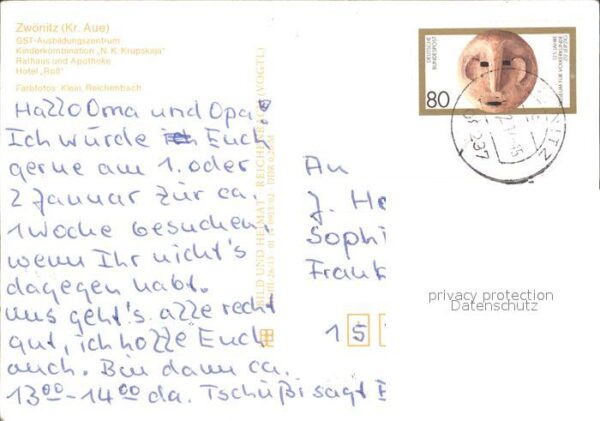 Zwönitz (Kr. Aue)
GST-Ausbildungszentrum
Kinderkombination „N. K. Krupskaja"
Rathaus und Apotheke
Hotel „Roß"
Farbfotos: Klein, Reichenbach
Hallo Oma und Opa!
Ich würde Euch
gerne am 1. oder
2 Januar zür ca.
1 Woche besuchen,
wenn Ihr nicht's
dagegen habt.
uns geht's alle recht
gut, ich hoffe Euch
auch. Bin dann ca.
13⁰⁰-14⁰⁰ da. Tschüßi sagt
BILD UND HEIMAT REICHENBACH (VOGTL)
DEUTSCHE
BUNDESPOST
80
237
An
J. He
Sophi
Frank
1 5
privacy protection
Datenschutz